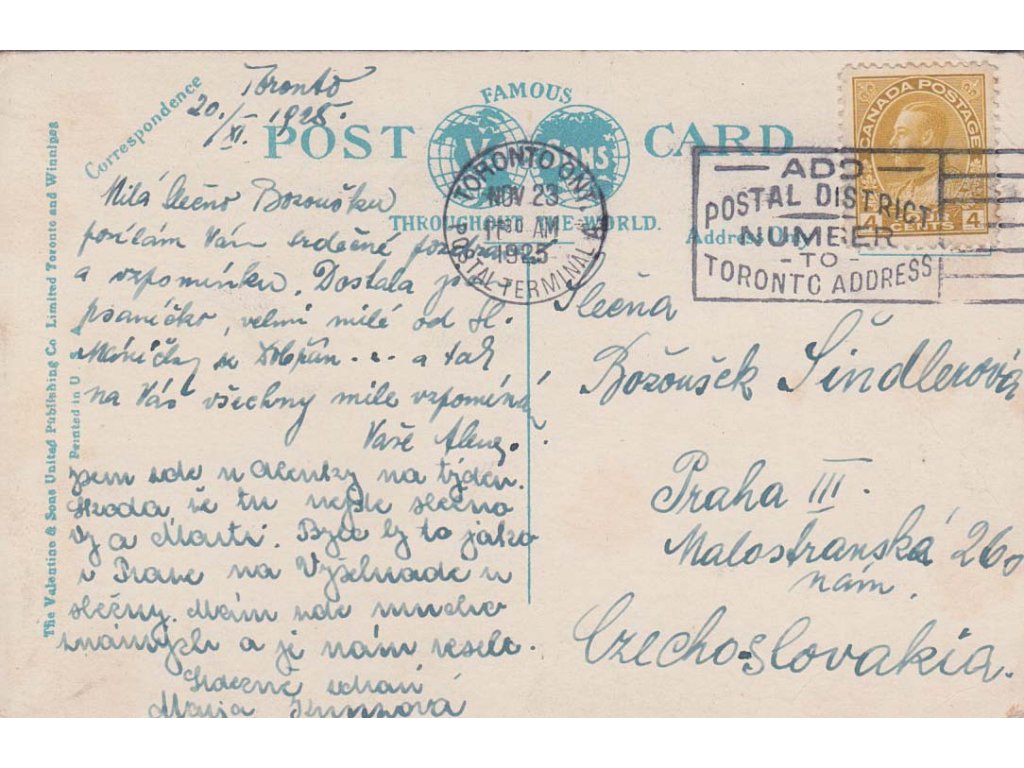 Correspondence
Toronto
20./XI. 1925.
FAMOUS
POST CARD
V & SONS
THROUGHOUT THE WORLD.
Address Only
CANADA POSTAGE
4 CENTS 4
TORONTO ONT
NOV 23
11 30 AM
1925
POSTAL TERMINAL A
ADD
POSTAL DISTRICT
NUMBER
- TO -
TORONTO ADDRESS
Milá slečno Božoušku
posílám Vám srdečné
a vzpomínku. Dostala jsem
psaníčko, velmi milé od sl.
a tak
na Vás všechny mile vzpomínám.
Vaše
jsem zde u Alenky na týden.
Škoda že tu nejste slečno
Vy a Marti. Bylo by to jako
v Praze na Vyšehradě u
slečny. Mám zde mnoho
známých a je nám veselo.
Srdečně zdraví
Marja
Slečna
Božoušek Šindlerová
Praha III.
Malostranská 260
nám.
Czecho-slovakia.
The Valentine & Sons United Publishing Co Limited Toronto and Winnipeg
Printed in U. S. A.